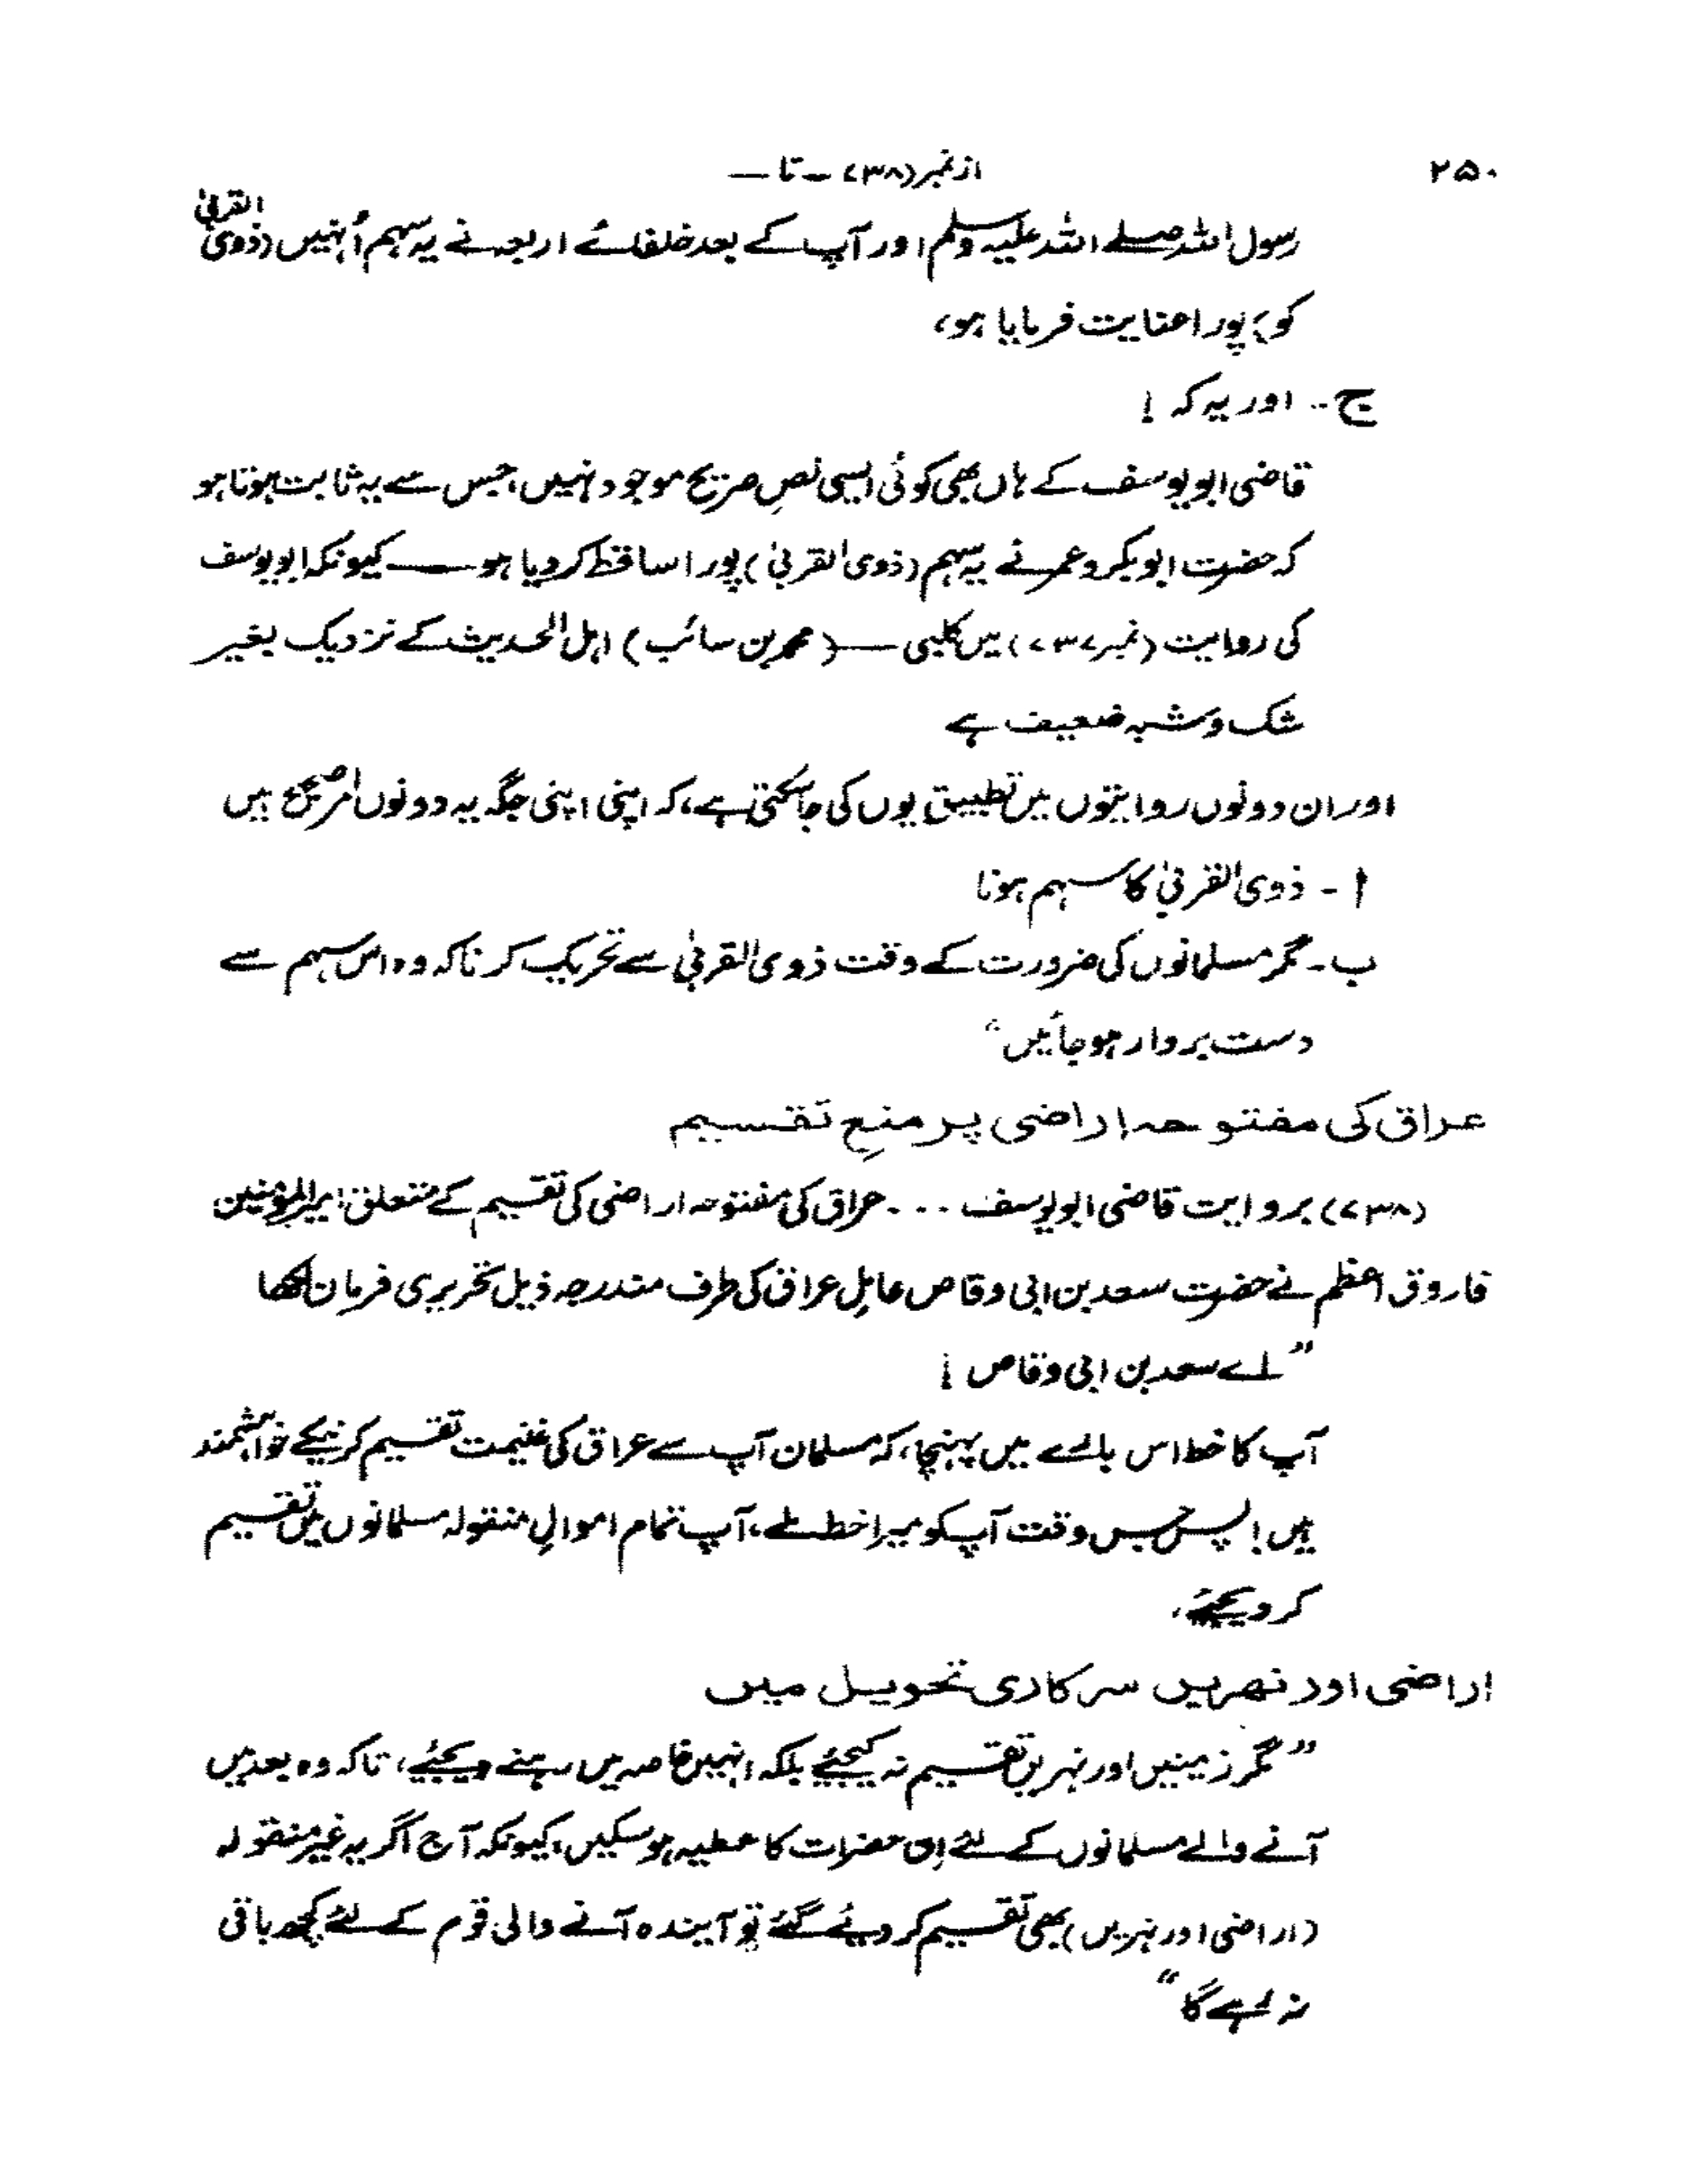 ۲۵۰
از نمبر (۷۳۸) — تا —
رسول اللہ صلے اللہ علیہ وسلم اور آپ کے بعد خلفائے اربعہ نے یہ سہم اُنہیں (ذوی القربیٰ
کو) پورا عنایت فرمایا ہو،
ج ۔ اور یہ کہ !
قاضی ابویوسف کے ہاں بھی کوئی ایسی نصِ صریح موجود نہیں، جس سے یہ ثابت ہوتا ہو
کہ حضرت ابوبکر و عمر نے یہ سہم (ذوی القربیٰ) پورا ساقط کر دیا ہو — کیونکہ ابویوسف
کی روایت (نمبر ۷۳۷) میں کلبی — (محمد بن سائب) اہل الحدیث کے نزدیک بغیر
شک و شبہ ضعیف ہے
اور ان دونوں روایتوں میں تطبیق یوں کی جا سکتی ہے، کہ اپنی اپنی جگہ یہ دونوں امر صحیح ہیں
ا ۔ ذوی القربیٰ کا سہم ہونا
ب ۔ مگر مسلمانوں کی ضرورت کے وقت ذوی القربیٰ سے تحریک کرنا کہ وہ اس سہم سے
دست بردار ہو جائیں“
عراق کی مفتوحہ اراضی پر منعِ تقسیم
(۷۳۸) بروایت قاضی ابویوسف ... عراق کی مفتوحہ اراضی کی تقسیم کے متعلق امیرالمؤمنین
فاروق اعظم نے حضرت سعد بن ابی وقاص عاملِ عراق کی طرف مندرجہ ذیل تحریری فرمان لکھا
”اے سعد بن ابی وقاص !
آپ کا خط اس بارے میں پہنچا، کہ مسلمان آپ سے عراق کی غنیمت تقسیم کرنیکے خواہشمند
ہیں! پس جس وقت آپکو میرا خط ملے، آپ تمام اموالِ منقولہ مسلمانوں میں تقسیم
کر دیجئے،
اراضی اور نہریں سرکاری تحویل میں
”مگر زمینیں اور نہریں تقسیم نہ کیجئے بلکہ انہیں خاصہ میں رہنے دیجئے، تاکہ وہ بعد میں
آنے والے مسلمانوں کے لئے ان حضرات کا عطیہ ہو سکیں، کیونکہ آج اگر یہ غیر منقولہ
(اراضی اور نہریں) بھی تقسیم کر دیئے گئے تو آیندہ آنے والی قوم کے لئے کچھ باقی
نہ رہے گا“